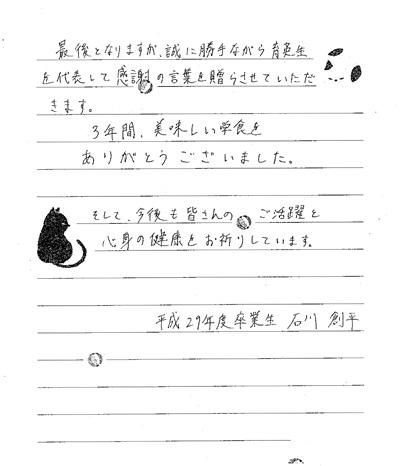 最後となりますが、誠に勝手ながら育英生
を代表して感謝の言葉を贈らさせていただ
きます。
3年間、美味しい学食を
ありがとうございました。
そして、今後も皆さんのご活躍と
心身の健康をお祈りしています。
平成29年度卒業生 石川 創平